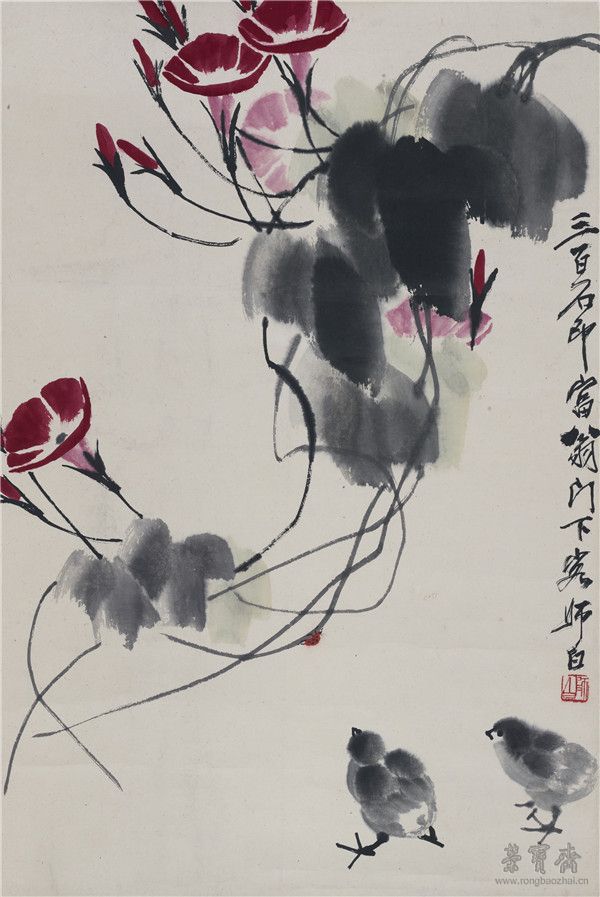 三百石印富翁门下娄师白
師白
荣宝斋
www.rongbaozhai.cn